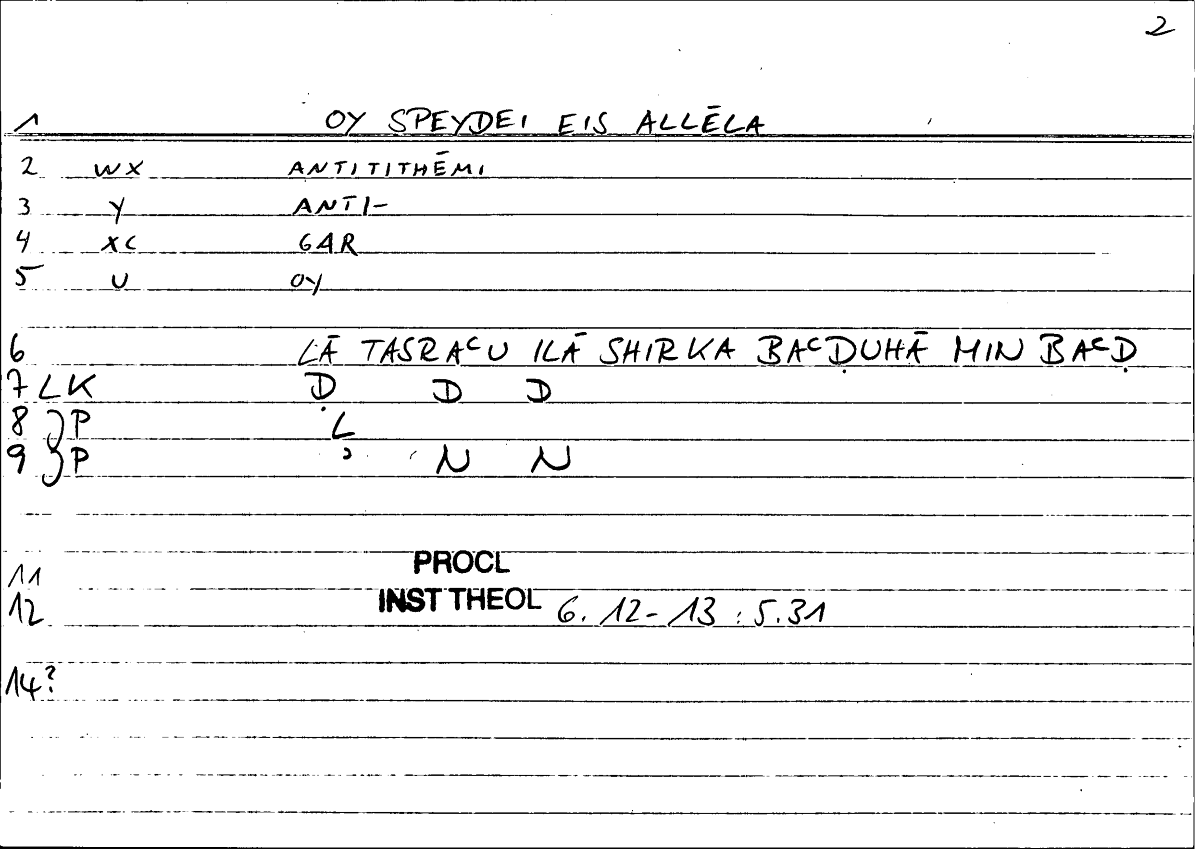 2
1 OY SPEYDEI EIS ALLĒLA
2 WX ANTITITHĒMI
3 Y ANTI-
4 XC GAR
5 U OY
6 LĀ TASRAᶜU ILĀ SHIRKA BAᶜḌUHĀ MIN BAᶜḌ
7 LK Ḍ D D
8 }P L
9 }P ʾ N N
11 PROCL
12 INST THEOL 6. 12-13 : 5.31
14?